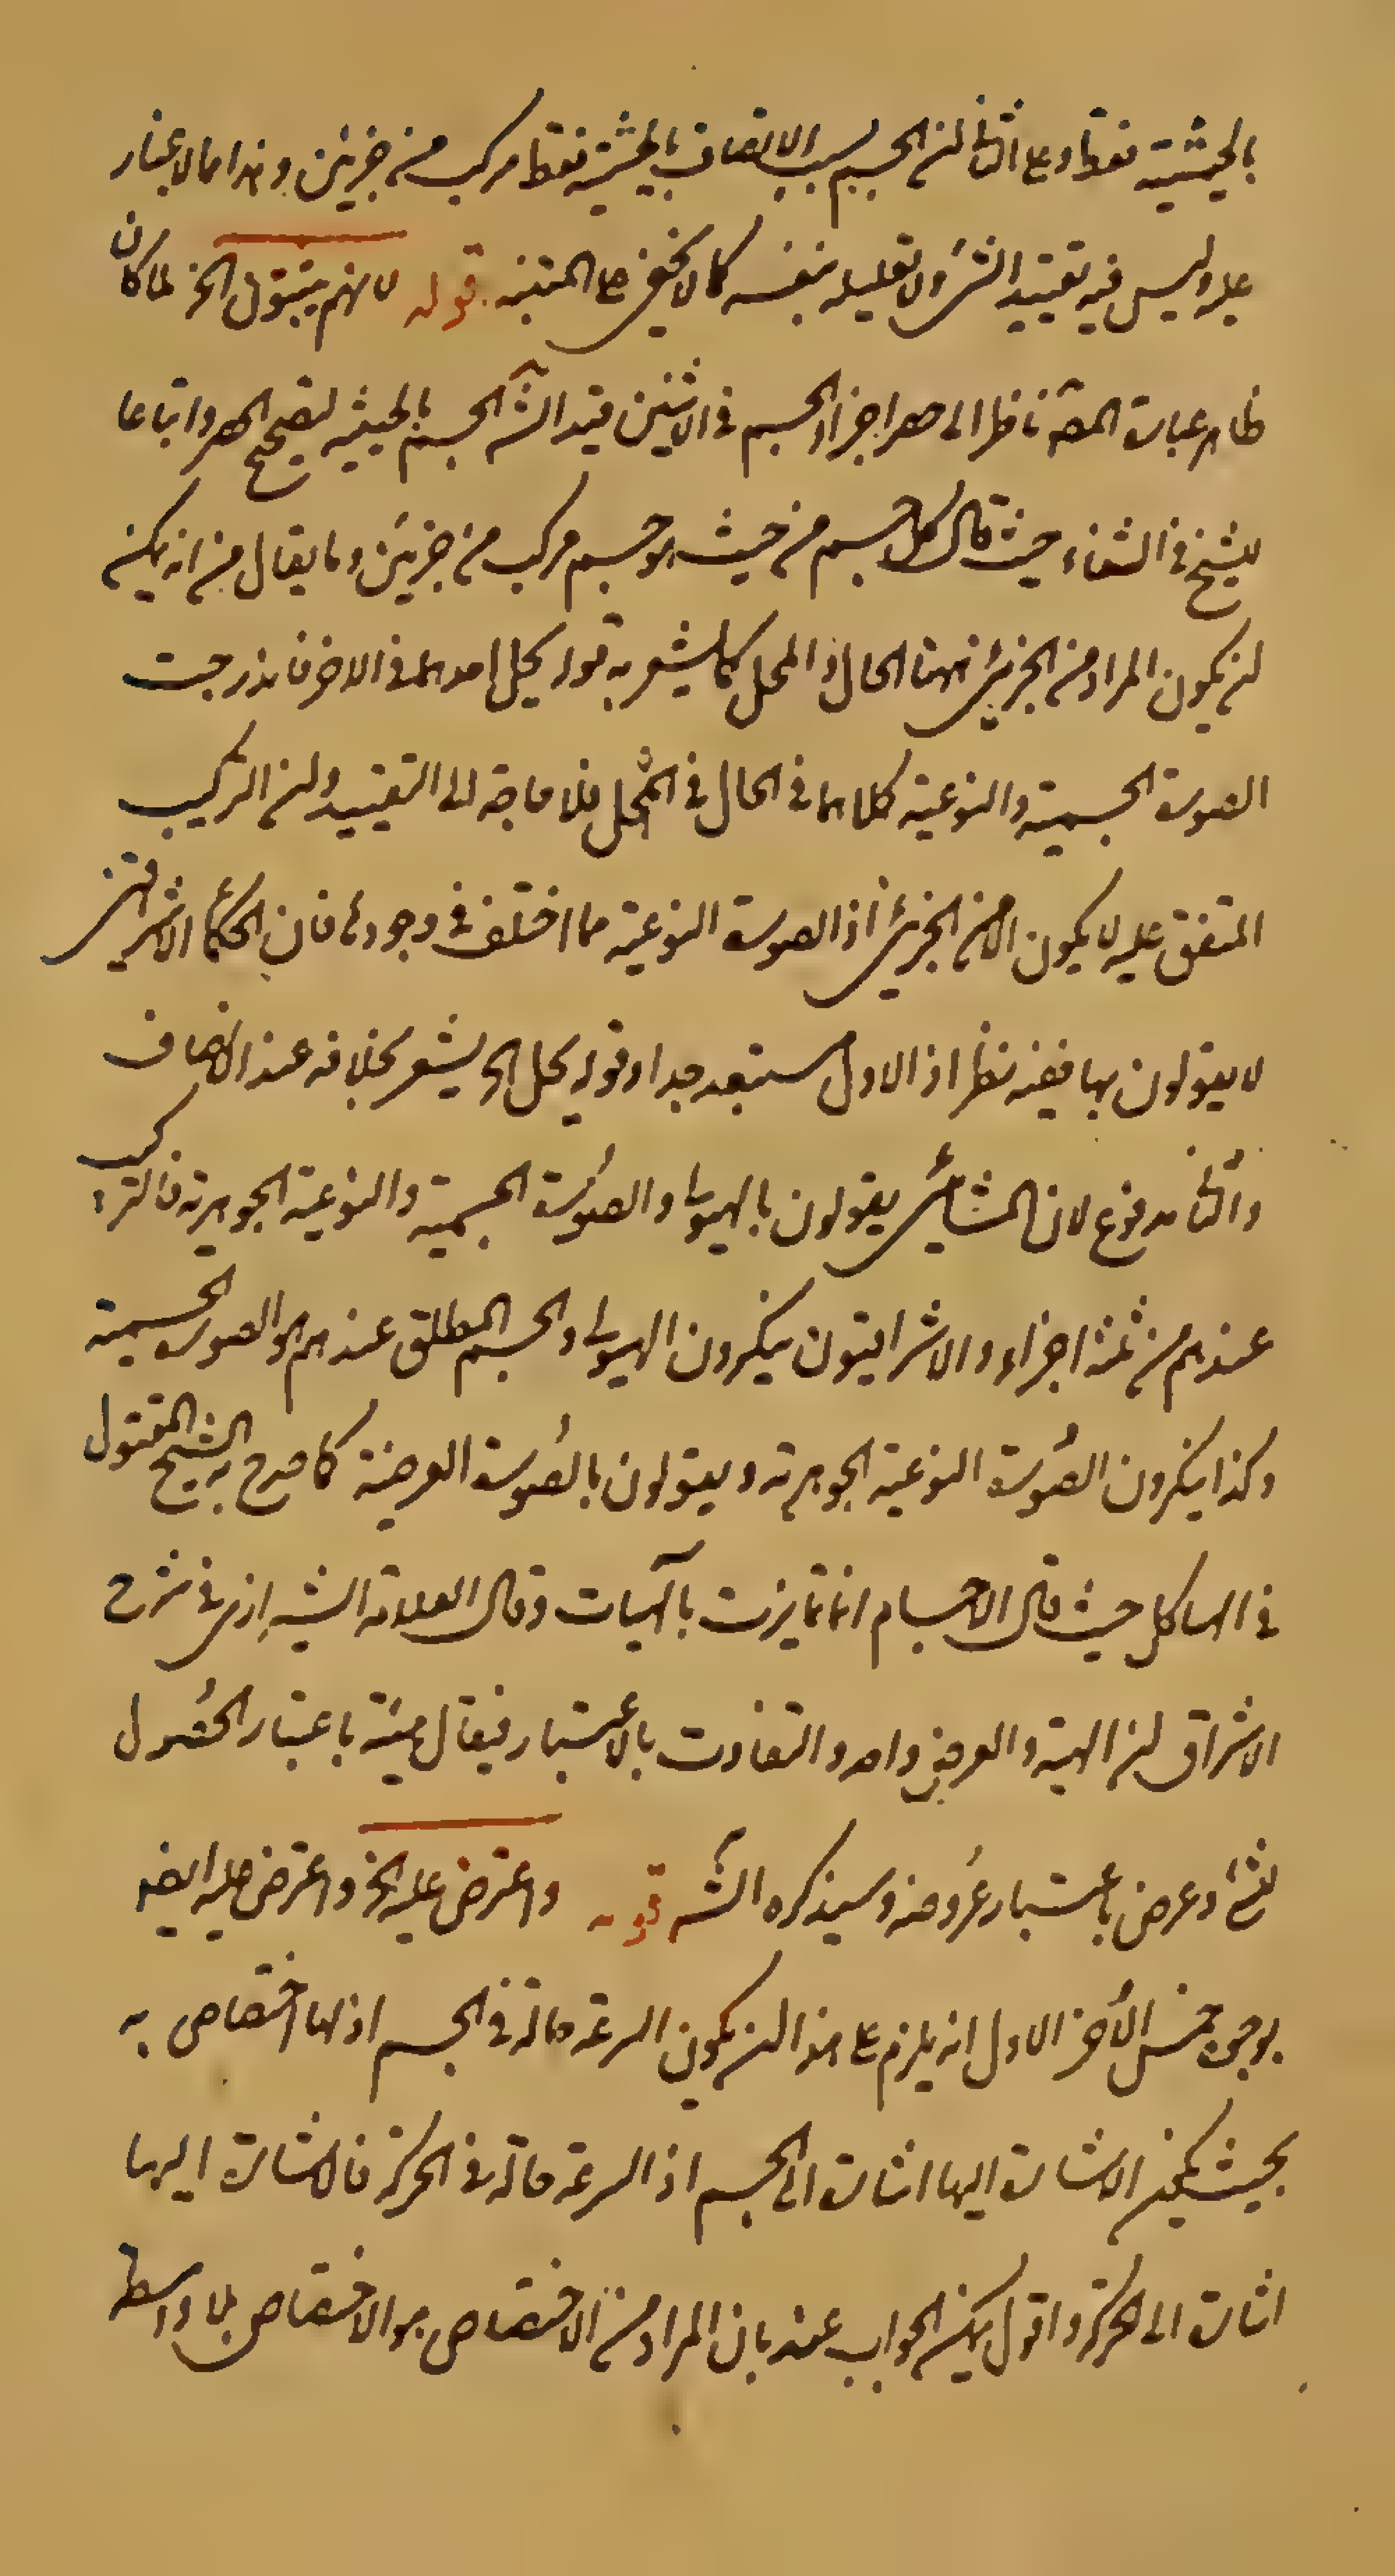 بالحيثية فقط وعلى الثاني ان الجسم بسبب الاتصاف بالحيثية فقط مركب من جزئين وهذا مما لا غبار
عليه وليس فيه تقييد الشئ ولا تعليله بنفسه كما لا يخفى على المتنبه قوله لانهم يثبتون الخ لما كان
ظاهر عبارة المصـ ناظرا الى حصر اجزاء الجسم في الاثنين قيد الشـ الجسم بالحيثية ليصح الحصر واتباعا
للشيخ في الشفاء حيث قال كل جسم من حيث هو جسم مركب من جزئين وما يقال من انه يمكن
ان يكون المراد من الجزئين ههنا الحال والمحل كما يشعر به قوله يحل احدهما في الاخر فاندرجت
الصورة الجسمية والنوعية كلاهما في الحال في المحل فلا حاجة الى التقييد وان التركيب
المتفق عليه لا يكون الا من الجزئين اذ الصورة النوعية مما اختلف في وجودها فان الحكماء الاشراقيين
لا يقولون بها ففيه نظر اذ الاول مستبعد جدا وقوله يحل الخ يشعر بخلافه عند الانصاف
والثاني مدفوع لان المشائين يقولون بالهيولى والصورة الجسمية والنوعية الجوهرية فالتركيب
عندهم من ثلثة اجزاء والاشراقيون ينكرون الهيولى والجسم المطلق عندهم هو الصورة الجسمية
وكذا ينكرون الصورة النوعية الجوهرية ويقولون بالصورة العرضية كما صرح به الشيخ المقتول
في الهياكل حيث قال الاجسام انما تمايزت بالهيآت وقال العلامة الشيرازي في شرح
الاشراق ان الهيئة والعرض واحد والتفاوت بالاعتبار فيقال هيئة باعتبار الحصول
لشئ وعرض باعتبار عروضه وسيذكره الشـ قوله واعترض عليه الخ واعترض عليه ايضا
بوجوه خمس الأخر الاول انه يلزم على هذا ان يكون السرعة حالة في الجسم اذ لها اختصاص به
بحيث يكون الاشارة اليها اشارة الى الجسم اذ السرعة حالة في الحركة فالاشارة اليها
اشارة الى الحركة واقول يمكن الجواب عنه بان المراد من الاختصاص هو الاختصاص بلا واسطة